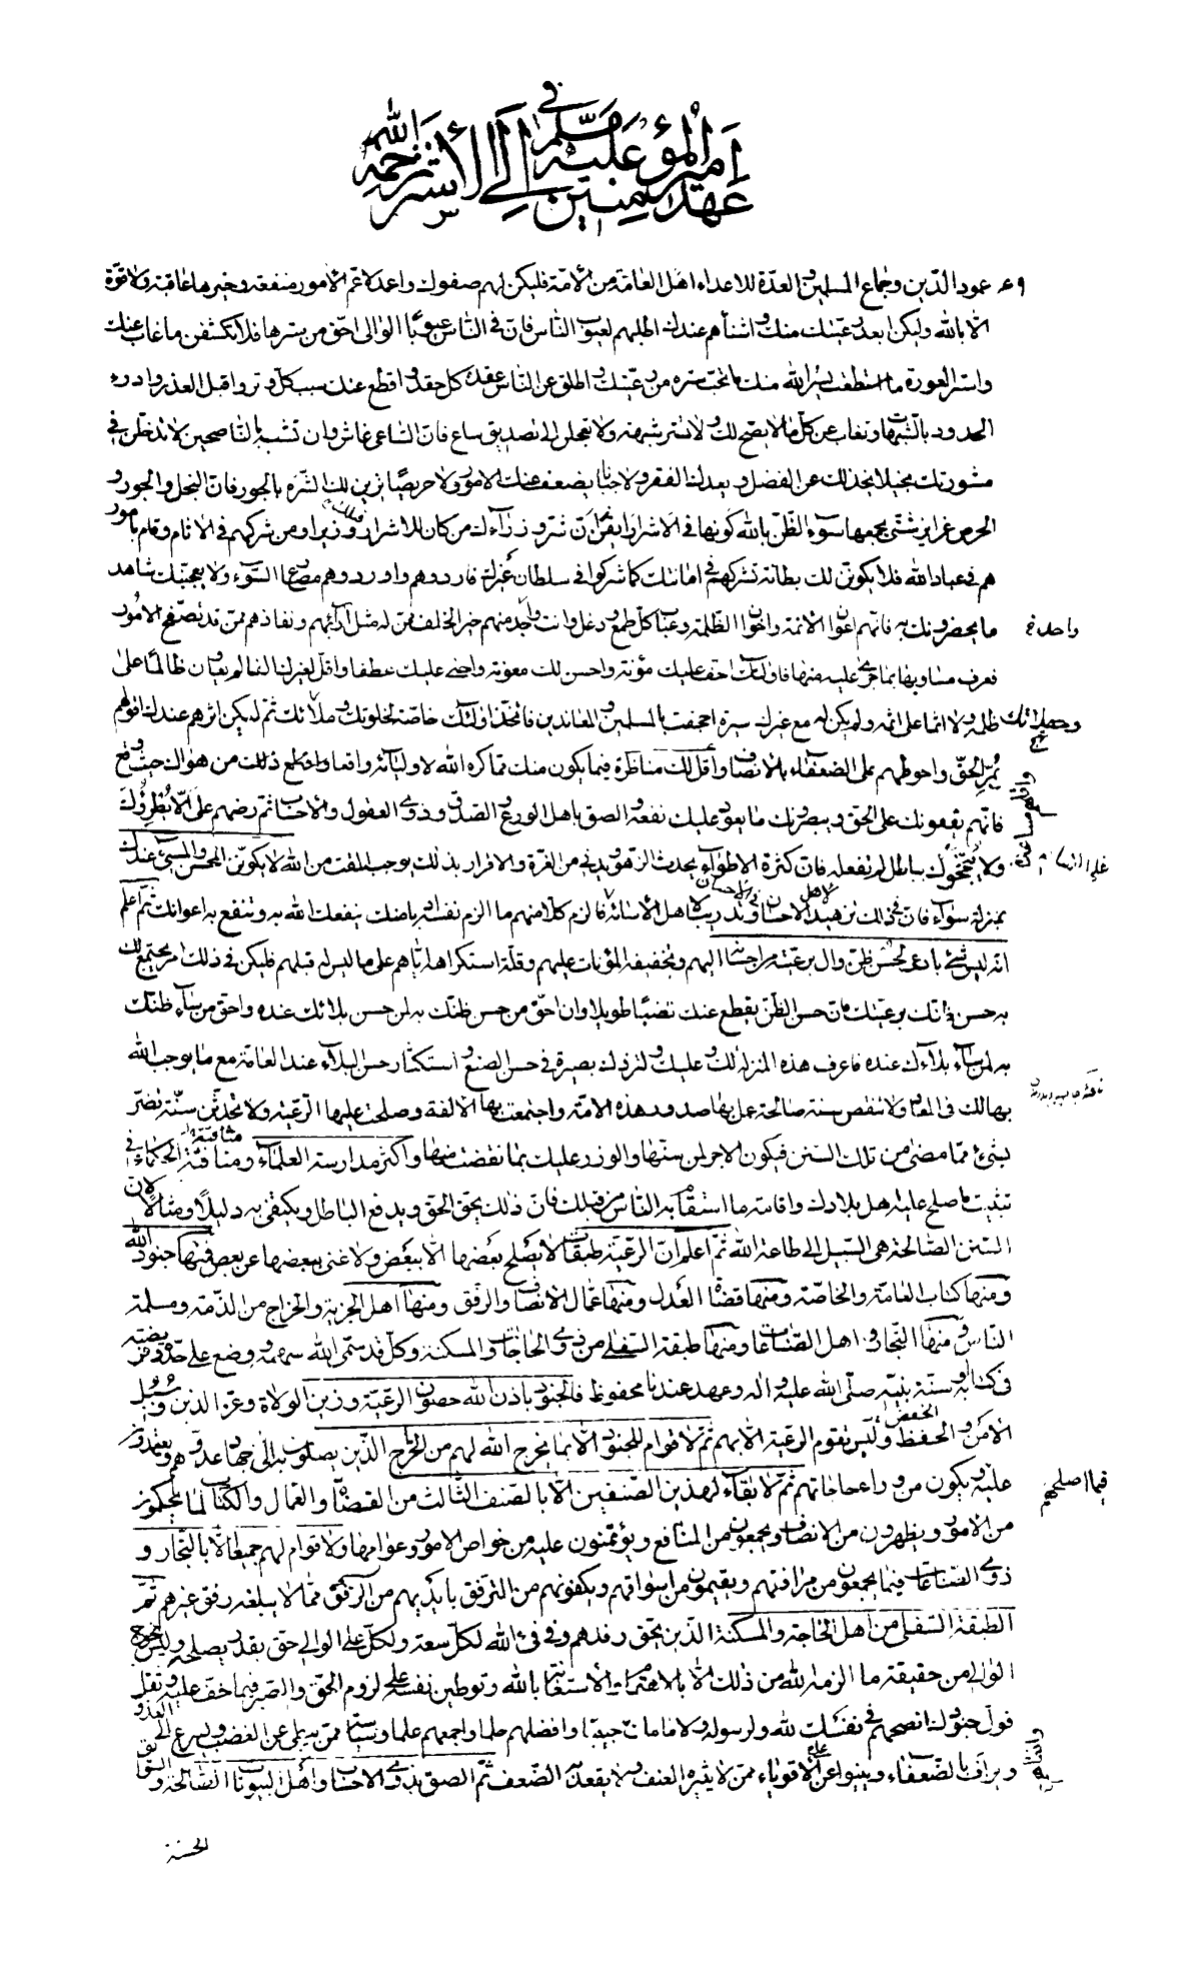 عهد أمير المؤمنين عليه سلم إلى الأشتر رحمه الله
عمود الدين وجماع المسلمين والعدة للاعداء اهل العامة من الامة فليكن لهم صفوك واعمد لاعم الامور منفعة وخيرها عاقبة ولا قوة
الا بالله وليكن ابعد رعيتك منك واشنأهم عندك اطلبهم لعيوب الناس فان في الناس عيوبا الوالى احق من سترها فلا تكشفن ما غاب عنك
واستر العورة ما استطعت يستر الله منك ما تحب ستره من رعيتك واطلق عن الناس عقد كل حقد واقطع عنك سبب كل وتر واقبل العذر وادرء
الحدود بالشبهات وتغاب عن كل ما لا يضح لك ولا تعجلن الى تصديق ساع فان الساعى غاش وان تشبه بالناصحين لا تدخلن في
مشورتك بخيلا يخذلك عن الفضل ويعدك الفقر ولا جبانا يضعف عنك الامور ولا حريصا يزين لك الشره بالجور فان البخل والجور و
الحرص غرايز شتى يجمعها سوء الظن بالله كونها في الاشرار ايقن ان شر وزراءك من كان للاشرار وزيرا ومن شركهم في الاثام وقام بامور
هم في عباد الله فلا يكونن لك بطانة تشركهم في امانتك كما شركوا في سلطان غيرك فاردوهم واوردوهم مصارع السوء ولا يعجبنك شاهد
ما يحضرونك به فانهم اعوان الاثمة واخوان الظلمة وعباب كل طمع ودغل وانت واجد منهم خير الخلف ممن له مثل آرائهم ونفاذهم ممن قد تصفح الامور
واحد
فعرف مساويها بما جرى عليه منها فاولئك اخف عليك مؤنة واحسن لك معونة واحنى عليك عطفا واقل لغيرك الفا لم يعاون ظالما على
ظلمه ولا اثما على اثمه ولم يكن له مع غيرك سيرة اجحفت بالمسلمين والمعاندين فاتخذ اولئك خاصة لخلوتك وملائك ثم ليكن اثرهم عندك اقولهم
بمر الحق واحوطهم على الضعفاء بالانصاف واقلهم لك مناظرة فيما يكون منك مما كره الله لاوليائه واقعا ذلك من هواك حيث وقع
فانهم يقفونك على الحق ويبصرونك ما يعود عليك نفعه والصق باهل الورع والصدق وذوى العقول والاحساب ثم رضهم على الا يطروك
ولا يبجحوك بباطل لم تفعله فان كثرة الاطراء يحدث الزهو ويدني من الغرة والاقرار بذلك يوجب المقت من الله لا يكونن المحسن والمسيء عندك
بمنزلة سواء فان في ذلك تزهيد لاهل الاحسان في الاحسان وتدريب لاهل الاساءة فالزم كلا منهم ما الزم نفسه ادبا منك ينفعك الله به وتنفع به اعوانك ثم اعلم
انه ليس شيء بادعى لحسن ظن وال برعيته من احسانه اليهم وتخفيفه المؤنات عليهم وقلة استكراهه اياهم على ما ليس له قبلهم فليكن في ذلك امر يجتمع لك
به حسن ظنك برعيتك فان حسن الظن يقطع عنك نصبا طويلا وان احق من حسن ظنك به لمن حسن بلائك عنده واحق من ساء ظنك
به لمن ساء بلاءك عنده فاعرف هذه المنزلة لك وعليك ولتزدك بصيرة في حسن الصنع واستكثار حسن البلاء عند العامة مع ما يوجب الله
بها لك في المعاد ولا تنقض سنة صالحة عمل بها صدور هذه الامة واجتمعت بها الالفة وصلحت عليها الرعية ولا تحدثن سنة تضر
بشيء مما مضى من تلك السنن فيكون الاجر لمن سنها والوزر عليك بما نقضت منها واكثر مدارسة العلماء ومنافثة الحكماء في
تثبيت ما صلح عليه اهل بلادك واقامة ما استقام به الناس من قبلك فان ذلك يحق الحق ويدفع الباطل ويكتفى به دليلا ومثالا لان
السنن الصالحة هى السبيل الى طاعة الله ثم اعلم ان الرعية طبقات لا يصلح بعضها الا ببعض ولا غنى ببعضها عن بعض فمنها جنود الله
ومنها كتاب العامة والخاصة ومنها قضاة العدل ومنها عمال الانصاف والرفق ومنها اهل الجزية والخراج من الذمة ومسلمة
الناس ومنها التجار واهل الصناعات ومنها طبقة السفلى من ذوى الحاجات والمسكنة وكل قد سمى الله سهمه ووضع على حد فريضته
في كتابه وسنة نبيه صلى الله عليه واله وعهد عندنا محفوظ فالجنود باذن الله حصون الرعية وزين الولاة وعز الدين وسبل
الامن والحفظ وليس تقوم الرعية الا بهم ثم لا قوام للجنود الا بما يخرج الله لهم من الخراج الذين يصلون به الى جهاد عدوهم ويعتمدون
عليه ويكون من وراء حاجاتهم ثم لا بقاء لهذين الصنفين الا بالصنف الثالث من القضاة والعمال والكتاب لما يحكمون
فيما اصلحهم
من الامور ويظهرون من الانصاف ويجمعون من المنافع ويؤتمنون عليه من خواص الامور وعوامها ولا قوام لهم جميعا الا بالتجار و
ذوى الصناعات فيما يجمعون من مرافقهم ويقيمون من اسواقهم ويكفونهم من الترفق بايديهم من الرفق مما لا يبلغه رفق غيرهم ثم
الطبقة السفلى من اهل الحاجة والمسكنة الذين يحق رفدهم وفي فيء الله لكل سعة ولكل على الوالى حق بقدر يصلحه وليس يخرج
الوالى من حقيقة ما الزمه الله من ذلك الا بالاهتمام والاستعانة بالله وتوطين نفسه على لزوم الحق والصبر فيما خف عليه وثقل
فول جنودك انصحهم في نفسك لله ولرسوله ولامامك جيبا وافضلهم حلما واجمعهم علما وسياسة ممن يبطئ عن الغضب ويسرع الى العذر
ويراف بالضعفاء وينبوا عن الاقوياء ممن لا يثيره العنف ولا يقعد به الضعف ثم الصق بذوى الاحساب واهل البيوتات الصالحة والسوابق
الحسنة